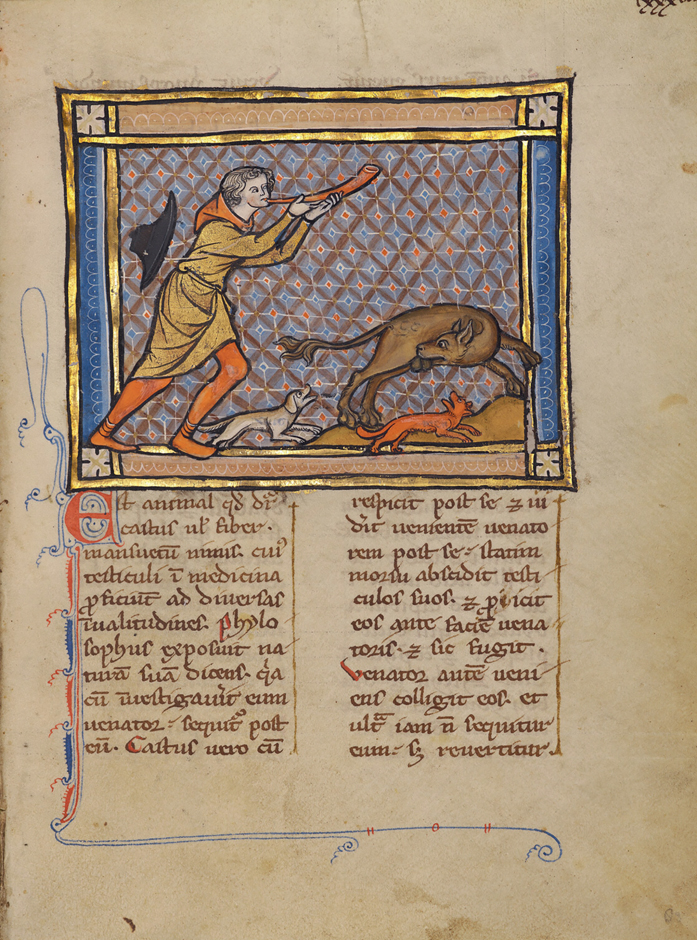 Est animal qd̄ dr̄
castus ul̓ fiber.
mansuetū nimis. cui᷒
testiculi ī medicina
ꝓficiūt ad diuersas
īualitudines. phylo
sophus exposuit na
turā suā dicens. qi̓a
cū īuestigauit̓ eum
uenator. sequit᷒ post
eū. Castus uero cū
respicit post se ⁊ ui
d̓it uenientē uenato
rem post se. statim
morsu abscidit testi
culos suos. ⁊ ꝓicit
eos ante faciē uena
toris. ⁊ sic fugit.
Venator autē ueni
ens colligit eos. et
ultᷓ iam n̄ sequitur
eum. sꝫ reuertitur.